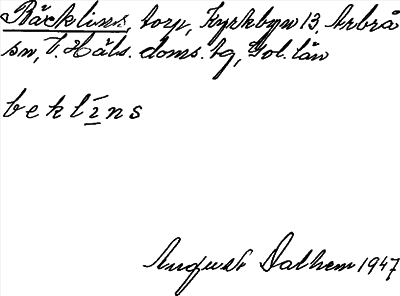 Bäcklins, torp, Kyrkbyn 13, Arbrå
sn, V. Häls. doms. tg, Gvl. län
beklīns
August Dalhem 1947